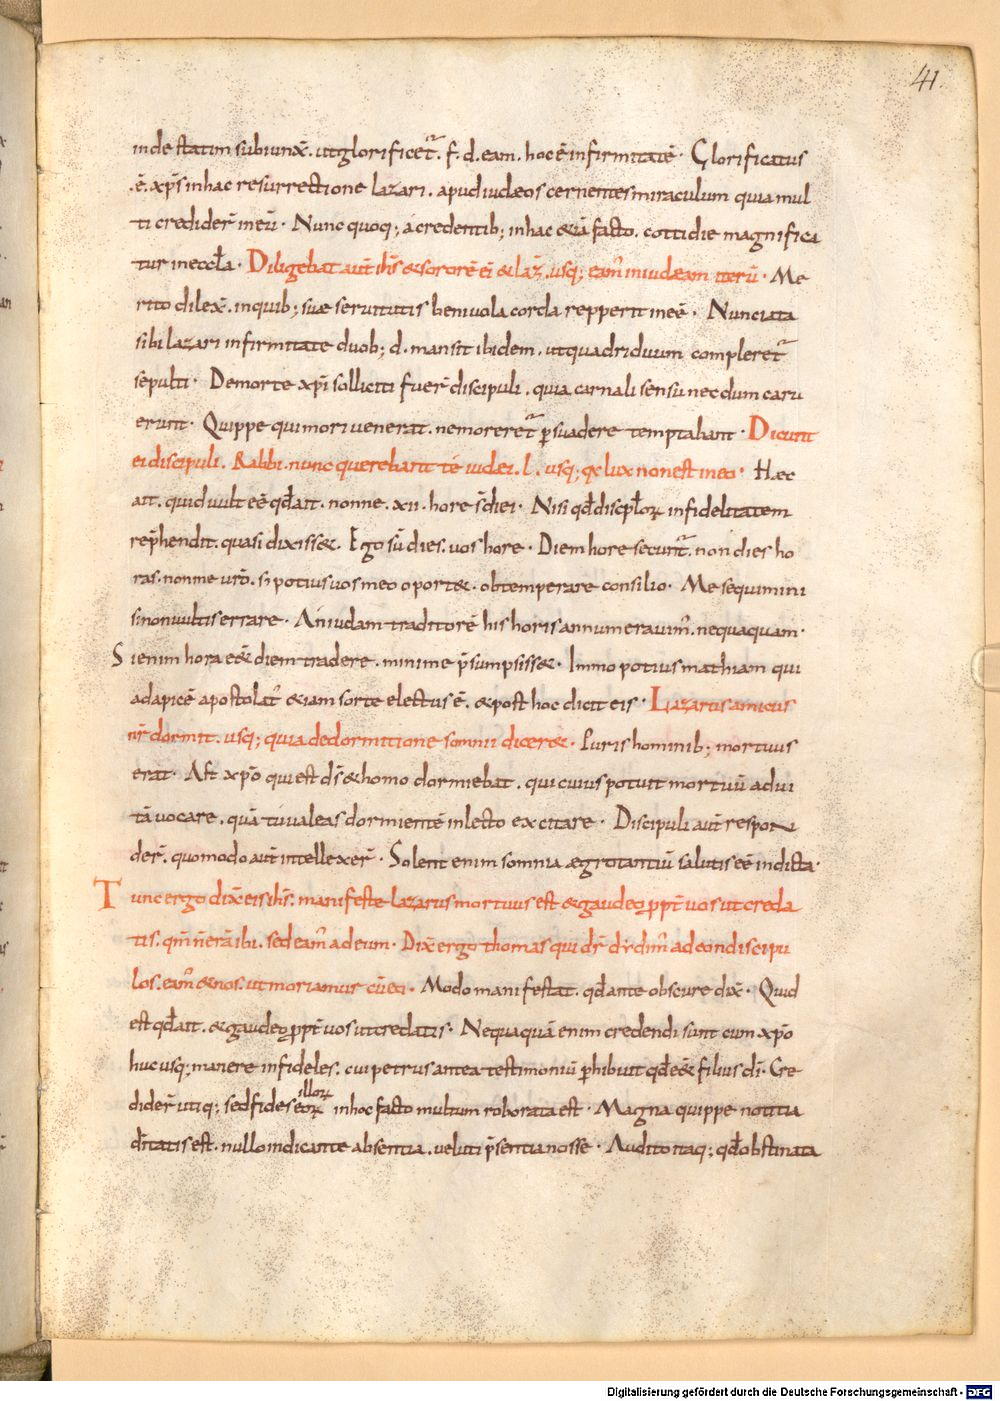 41.
inde statim subiunx̄. ut glorificet᷑. f. d. eam. hoc ē infirmitatē. Glorificatus
.ē. xp̄s in hac resurrectione lazari. apud iudæos cernentes miraculum quia mul
ti crediderͫ in eū. Nunc quoq; a credentib; in hac etiā facto. cottidie magnifica
tur in eccl̄a. Diligebat aut̄ ih̄s & sororē ei & laz̄. usq; eam̄ in iudæam iterū. Me
rito dilex̄. in quib; suæ seruitutis beniuola corda repperit ineē. Nunciata
sibi lazari infirmitate duob; d. mansit ibidem. ut quadriduum compleret᷑
sepulti. De morte xp̄i solliciti fuer̄ discipuli. quia carnali sensu necdum caru
erunt. Quippe qui mori venerat. ne moreret᷑ p̱suadere temptabant. Dicunt
ei discipuli. Rabbi. nunc querebant te iudei. l. usq; q̄ lux non est in eo. Hæc
ait. quid uult eē qd̄ ait. nonne. xii. hore s̄ diei. Nisi qd̄ discipl̄oꝝ infidelitatem
rep̄hendit. quasi dixiss&. Ego sū dies. uos hore. Diem hore secunt᷑. non dies ho
ras. non me urō. s; potius uos meo oport&. obtemperare consilio. Me sequimini
si non uultis errare. An iudam traditorē his horis annumerauim̄. nequaquam.
Si enim hora ee& diem tradere. minime p̄sumpsiss&. Immo potius mathiam qui
ad apicē apostolat᷒ &iam sorte electus ē. & post hoc dicit eis. Lazarus amicus
nr̄ dormit. usq; quia de dormitione somnii dicer&. Puris hominib; mortuus
erat. Aſt xp̄o qui est d̄s & homo dormiebat. qui cuius potuit mortuū ad ui
tā uocare. quā tu ualeas dormientē in lecto excitare. Discipuli aut̄ respon
der̄. quomodo aut̄ intellexer̄. Solent enim somnia ægrotantiū salutis eē indicta.
Tunc ergo dix̄ eis ih̄s. manifeste lazarus mortuus est & gaudeo ꝓpt̄ uos ut creda
tis. qm̄ n̄ erā ibi. sed eam̄ ad eum. Dix̄ ergo thomas qui dr̄ dydim̄ ad condiscipu
los. eam̄ & nos. ut moriamur cū eo. Modo manifestat. qd̄ ante obscure dix̄. Quid
est qd̄ ait. & gaudeo ꝓpt̄ uos ut credatis. Nequaquā enim credendi sunt cum xp̄o
huc usq; manere infideles. cui petrus antea testimoniū p̱hibuit qd̄ e&̄ filius di̅. Cre
dider̄ utiq; sed fides eoꝝ illoꝝ in hoc facto multum roborata est. Magna quippe notitia
d̄itatis est. nullo indicante absentia. ueluti p̄sentia nosse. Audito itaq; qd̄ obstinata
Digitalisierung gefördert durch die Deutsche Forschungsgemeinschaft - DFG